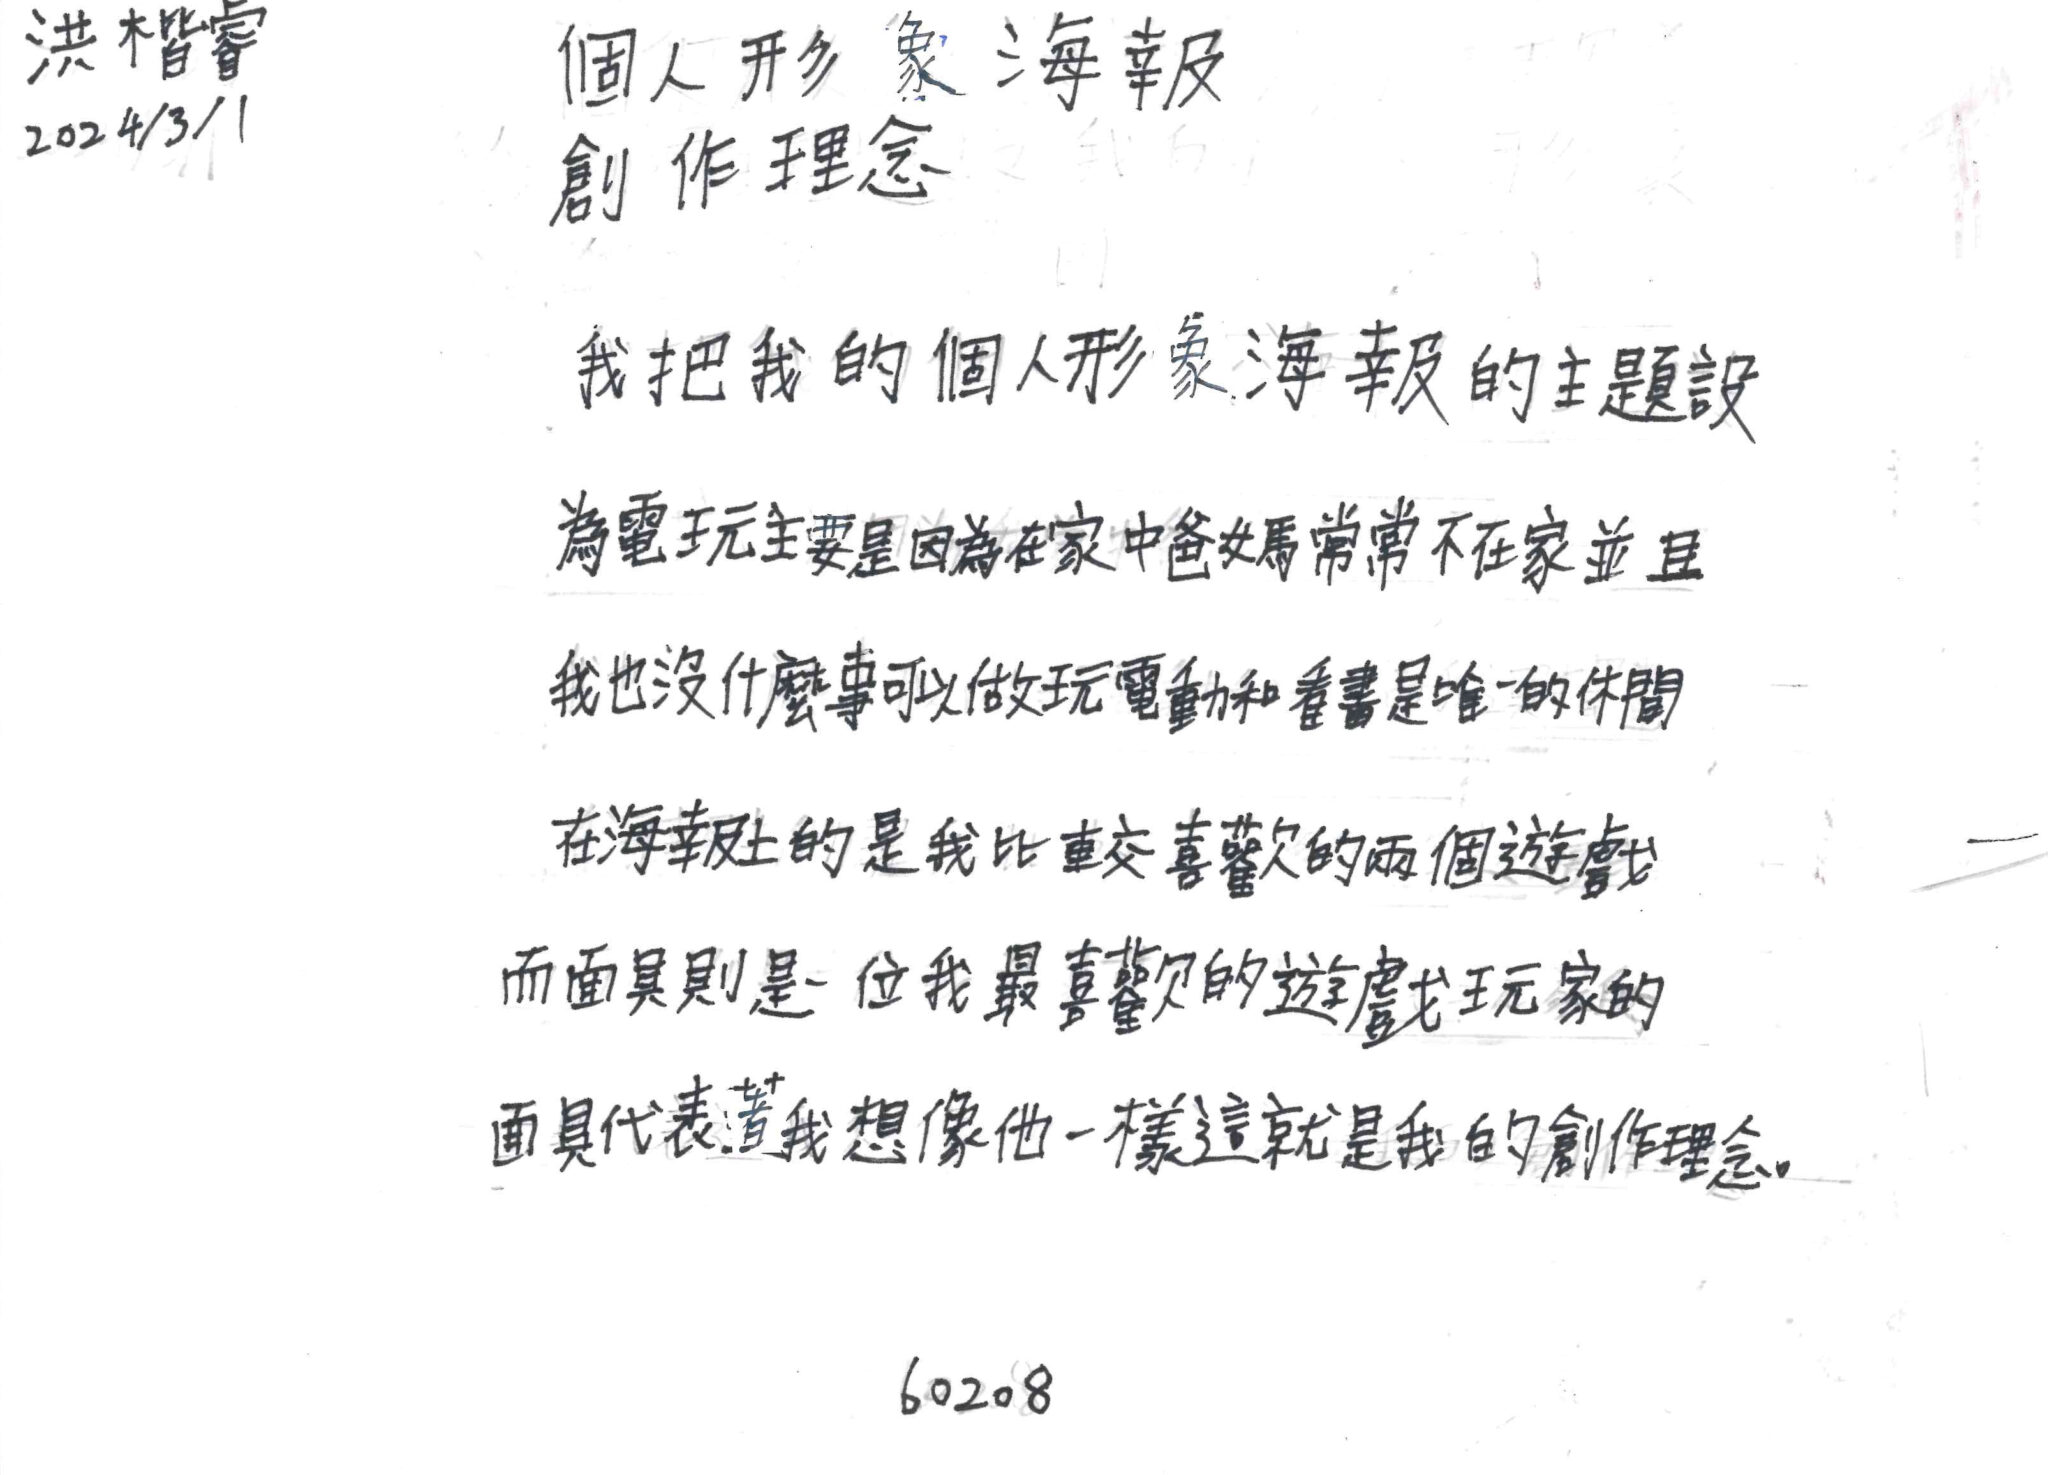 洪楷睿
2024/3/1
個人形象海報
創作理念
我把我的個人形象海報的主題設
為電玩主要是因為在家中爸媽常常不在家並且
我也沒什麼事可以做玩電動和看書是唯一的休閒
在海報上的是我比較喜歡的兩個遊戲
而面具則是一位我最喜歡的遊戲玩家的
面具代表著我想像他一樣這就是我的創作理念。
60208